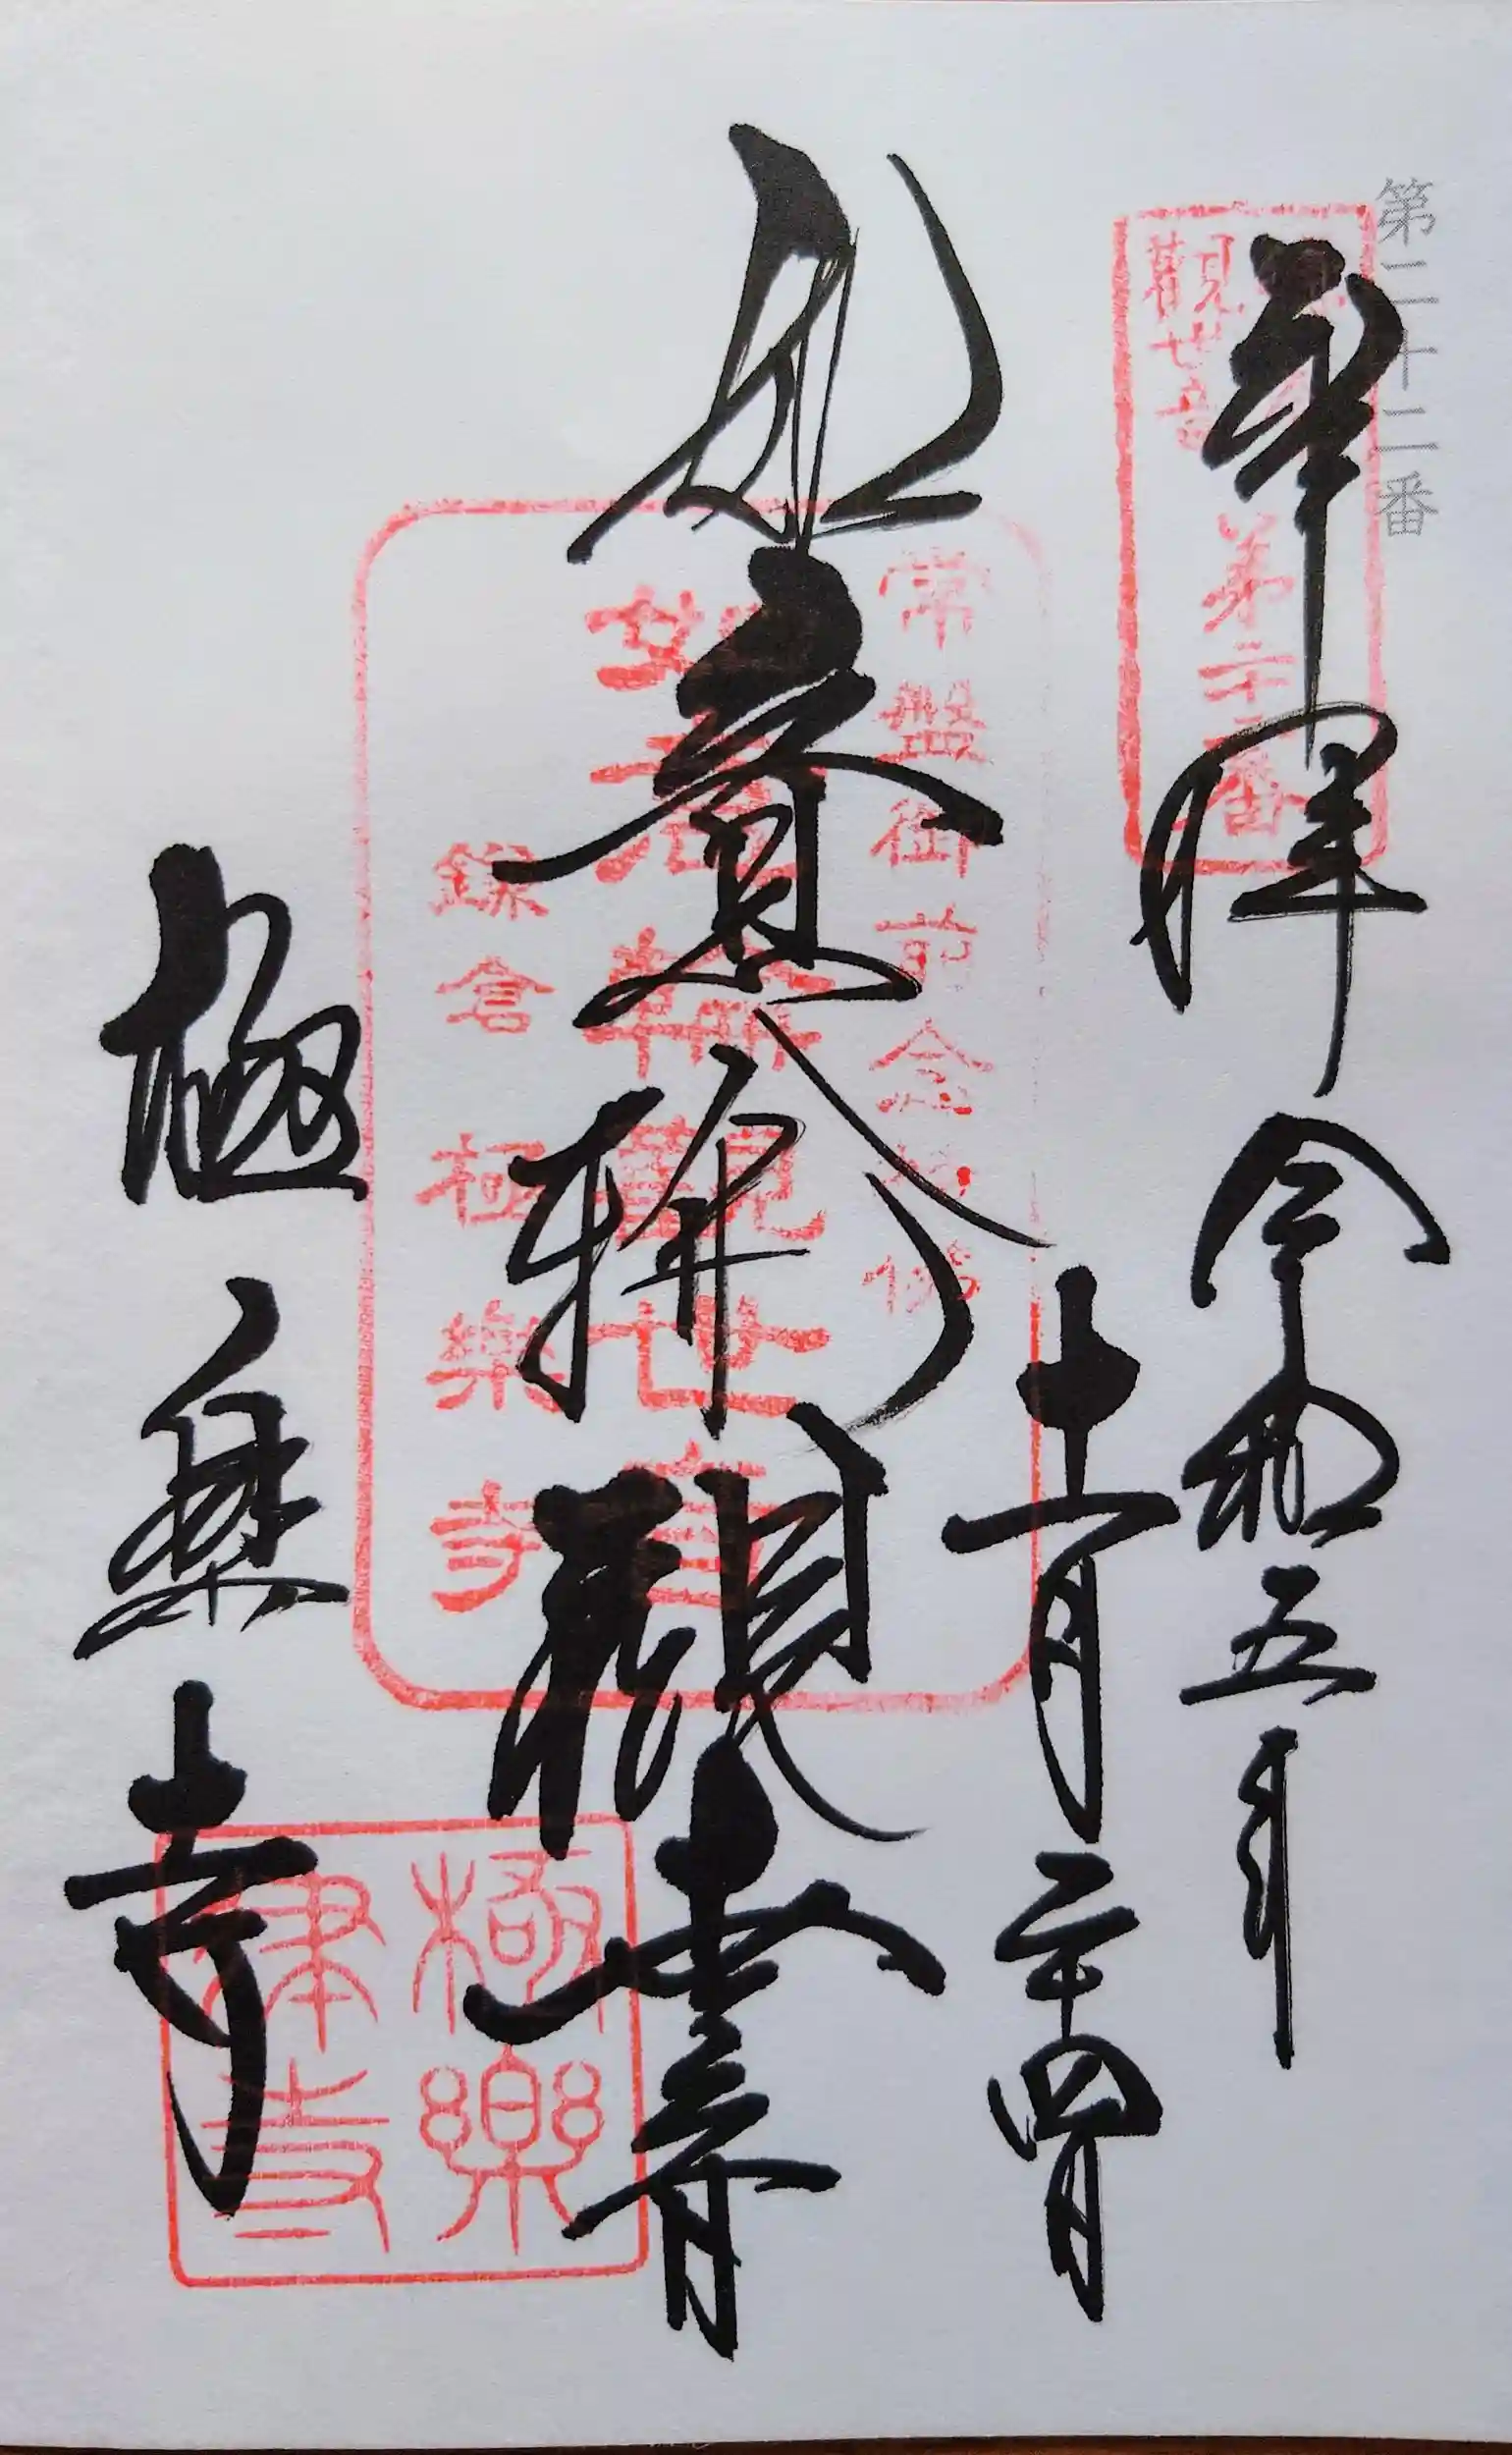 第二十二番
奉拝 令和五年
十一月二十四日
如意輪觀世音
極楽寺
第二十二番
観世音
常盤御前念持佛
如意輪觀世音
鎌倉 極樂寺
極樂
律寺